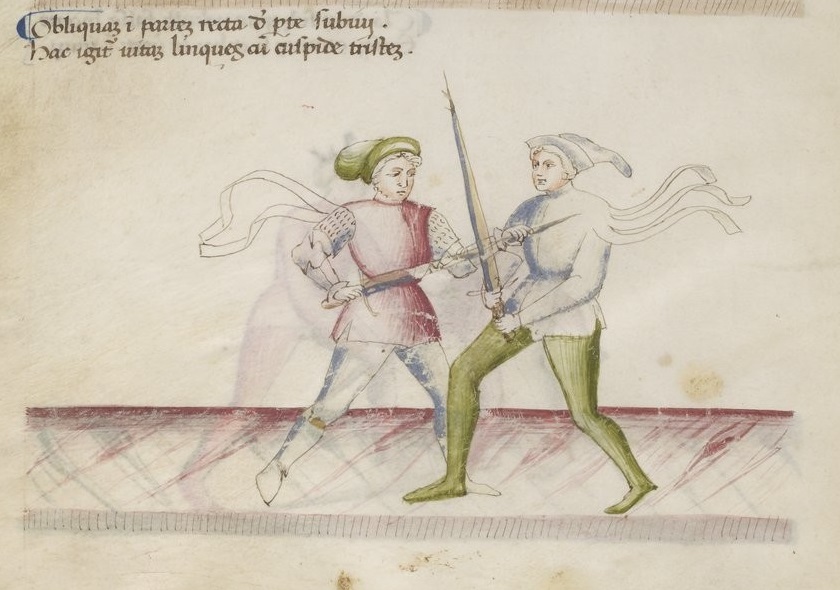 Obliquaʒ ī parteʒ recta đ p̱te subiuj .
Hac igit᷑ uitaʒ linqueʒ cū cuspide tristeʒ .